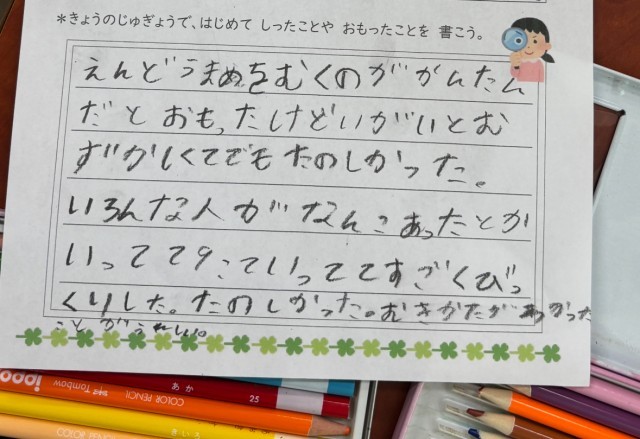 *きょうのじゅぎょうで、はじめて しったことや おもったことを 書こう。
えんどうまめをむくのがかんたん
だとおもったけどいがいとむ
ずかしくてでもたのしかった。
いろんな人がなんこあったとか
いってて9こていっててすごくびっ
くりした。たのしかった。むきかたがわかった
ことがうれしい。
ippo
Tombow
COLOR PENCIL
あか
25
COLOR PENCIL
きいろ